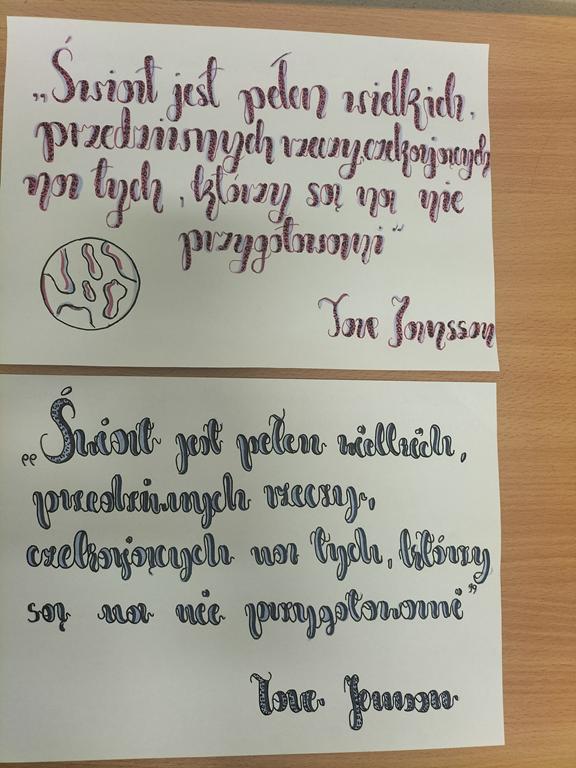 „Świat jest pełen wielkich,
przedziwnych rzeczy, czekających
na tych, którzy są na nie
przygotowani“
Tove Jansson
„Świat jest pełen wielkich,
przedziwnych rzeczy,
czekających na tych, którzy
są na nie przygotowani”
Tove